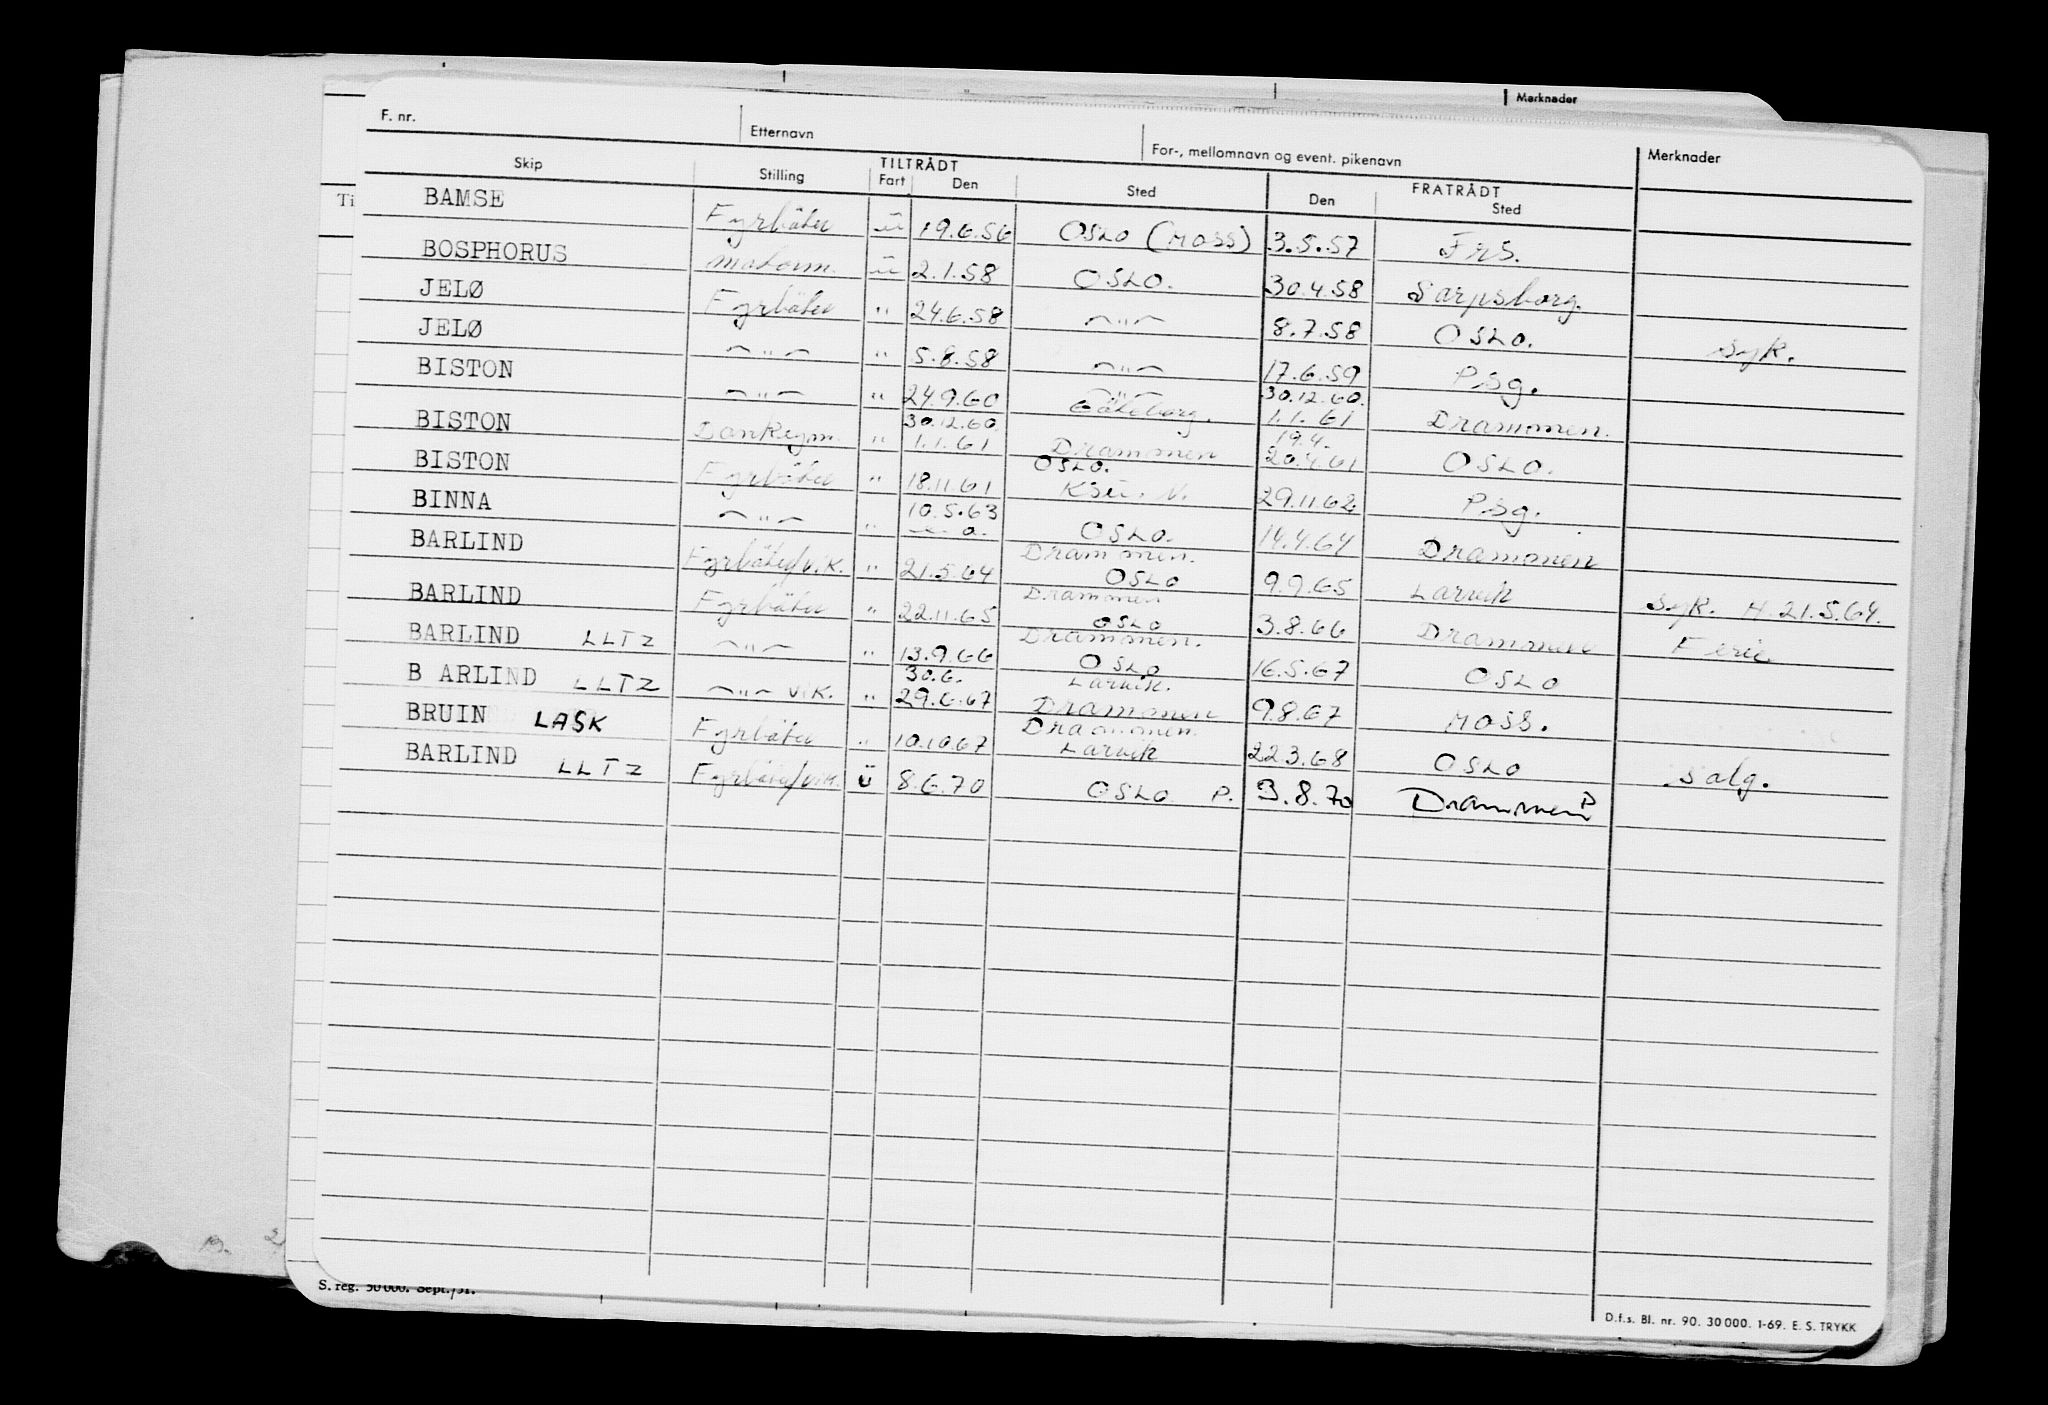 Merknader
F. nr. Etternavn For-, mellomnavn og event. pikenavn Merknader
Skip Stilling TILTRÅDT Fart Den Sted FRATRÅDT Den Sted
Ti
BAMSE Fyrbøter ü 19.6.56 OSLO (MOSS) 3.5.57 Frs.
BOSPHORUS motorm. ü 2.1.58 OSLO. 30.4.58 Sarpsborg.
JELØ Fyrbøter " 24.6.58 —"— 8.7.58 OSLO. syk.
JELØ —"— " 5.8.58 —"— 17.6.59 Psg.
BISTON —"— " 24.9.60 —"— Göteborg. 30.12.60. 1.1.61 Drammen.
BISTON Donkeym. " 30.12.60. 1.1.61 Drammen 19.4. 20.4.61 OSLO.
BISTON Fyrbøter " 18.11.61 OSLO. N. 29.11.62. Psg.
BINNA —"— " 10.5.63 OSLO. 14.4.64 Drammen
BARLIND Fyrbøter/vik. " 21.5.64 Drammen. OSLO 9.9.65 Larvik syk. H. 21.5.64.
BARLIND Fyrbøter " 22.11.65 Drammen OSLO 3.8.66 Drammen Ferie
BARLIND LLTZ —"— " 13.9.66 Drammen. OSLO 16.5.67 OSLO
B ARLIND LLTZ —"— vik. " 30.6. 29.6.67 Larvik. Drammen 9.8.67 MOSS.
BRUIN LASK Fyrbøter " 10.10.67 Drammen. Larvik 22.3.68 OSLO Salg.
BARLIND LLTZ Fyrbøter/vik. ü 8.6.70 OSLO P. 3.8.70 Drammen P
S. reg. 50 000. Sept./51.
D.f.s. Bl. nr. 90. 30 000. 1-69. E. S. TRYKK